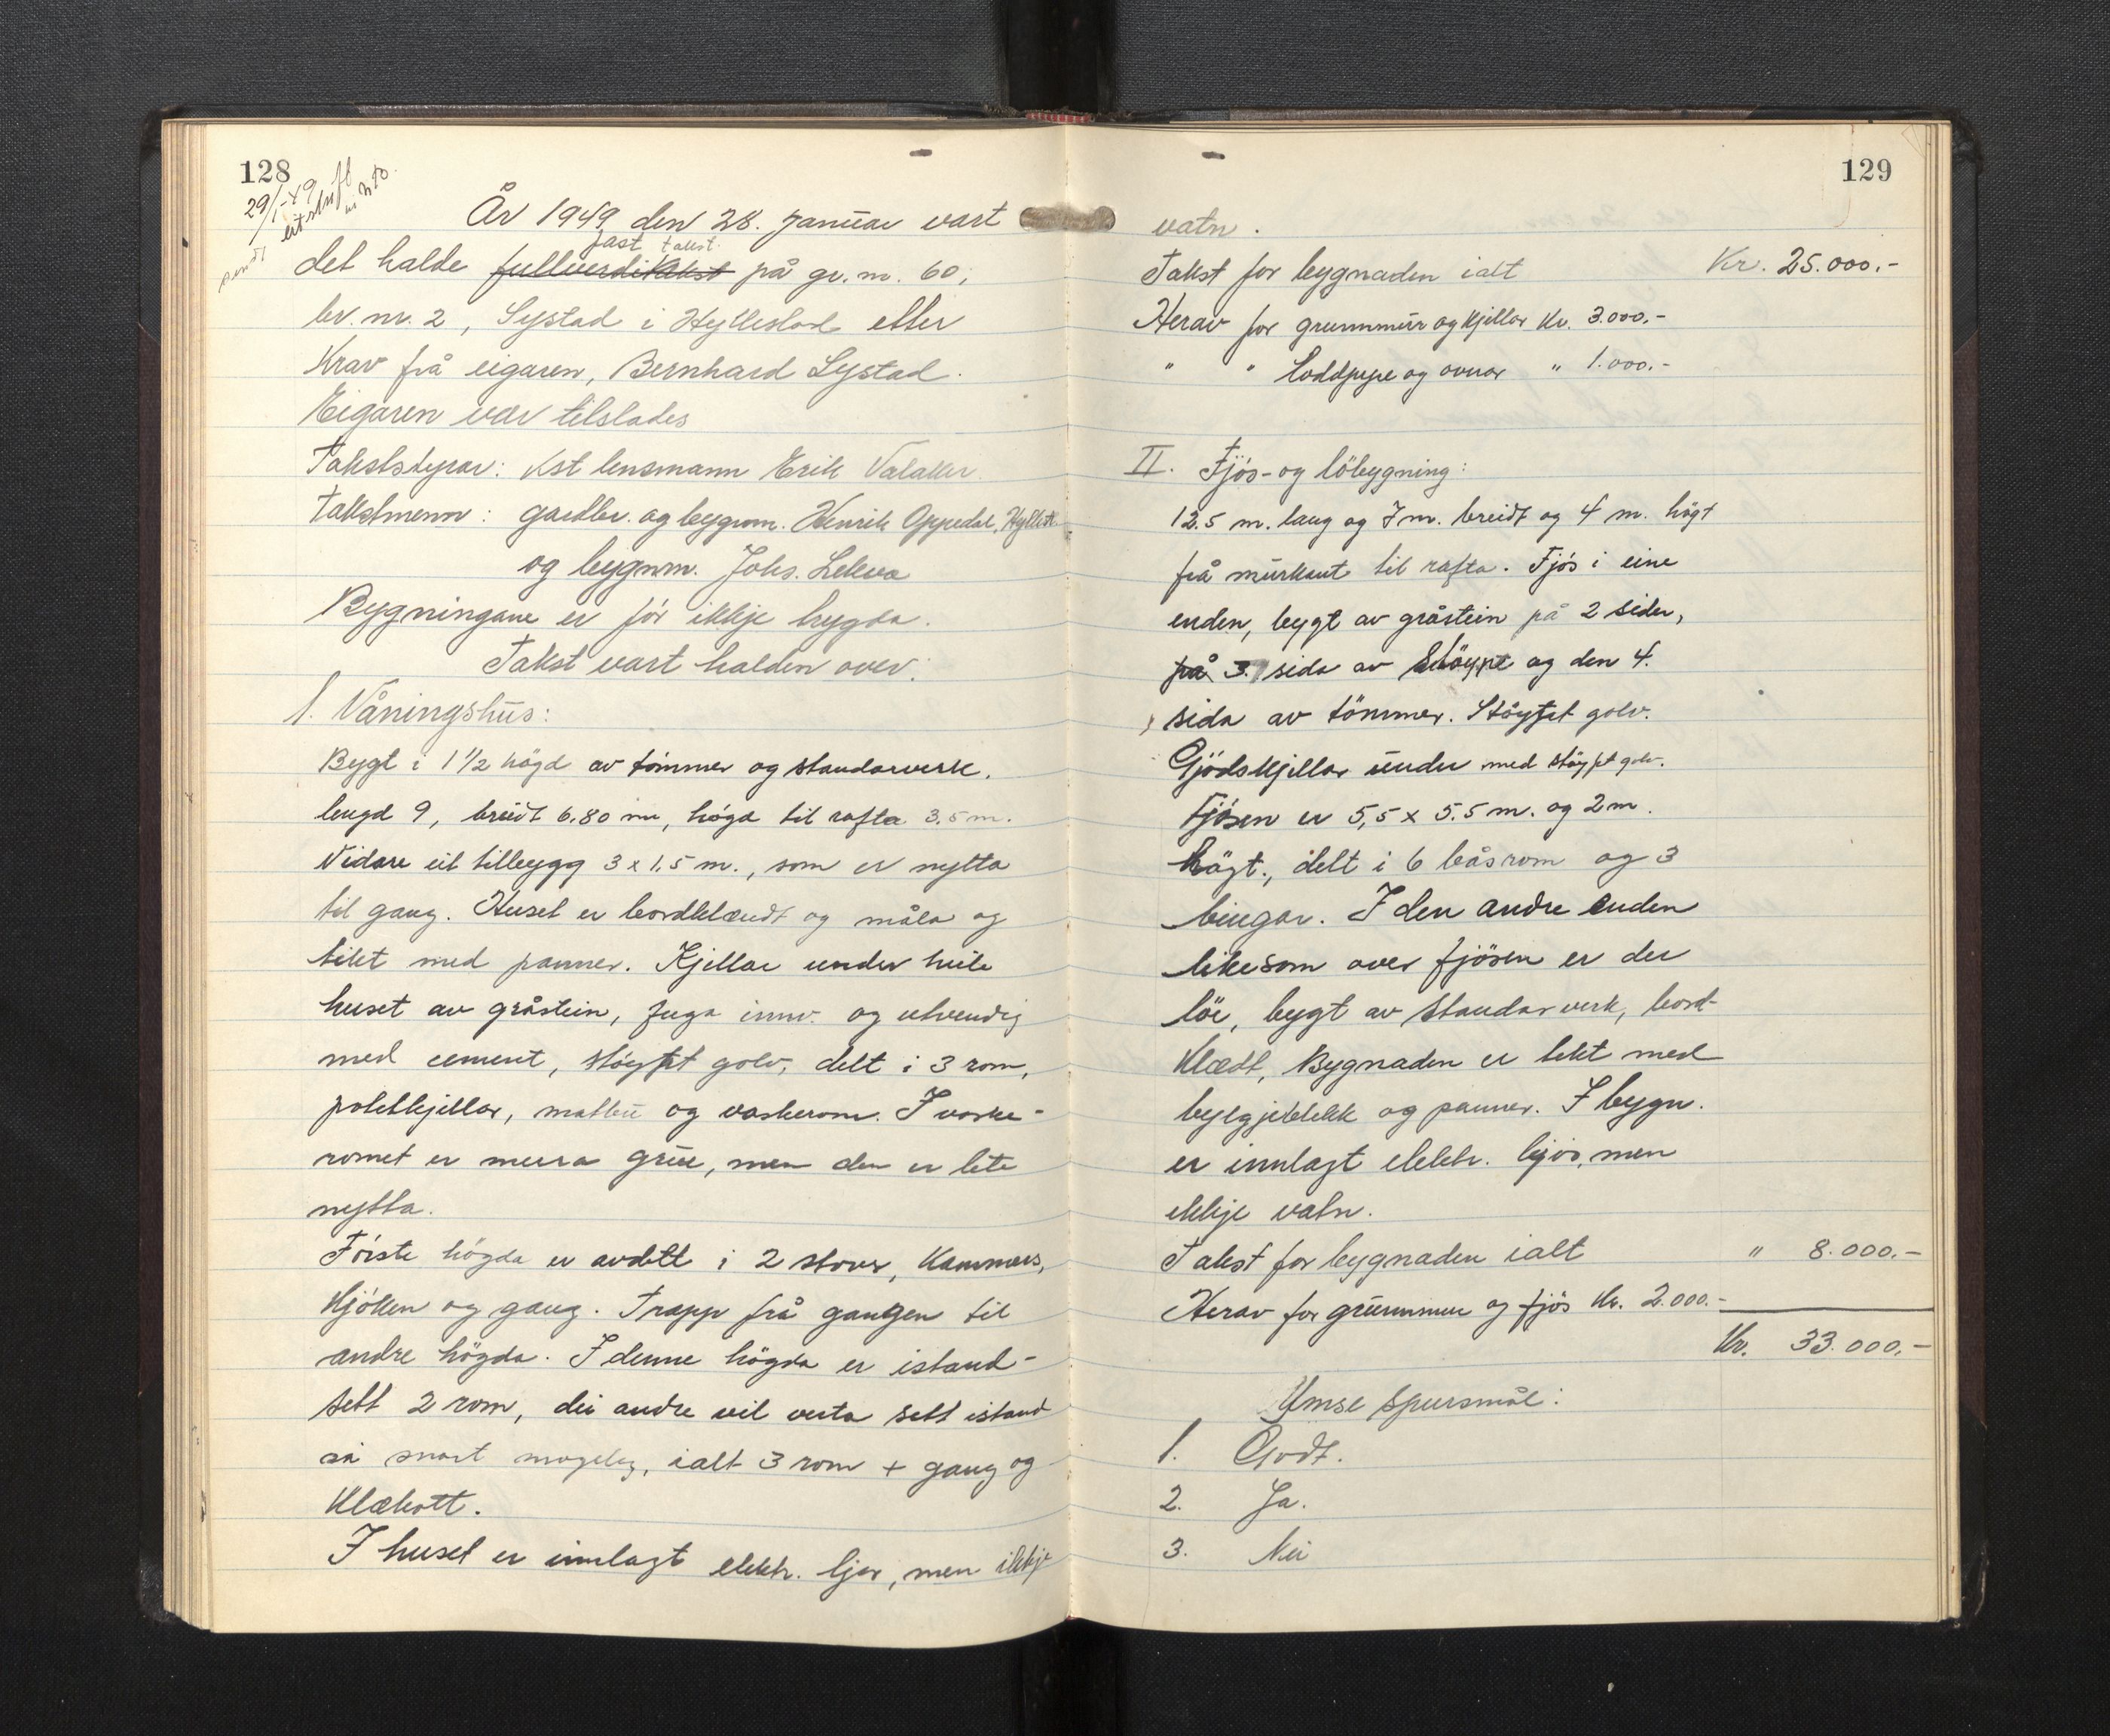 128
29/1-49
sendt utskrift
År 1949 den 28. januar vart
fast takst.
det halde fullverditakst på gr. nr. 60,
br. nr. 2, Systad i Hyllestad etter
krav frå eigaren, Bernhard Systad.
Eigaren var tilstades
Takststyrar: Kst lensmann Erik Valaker.
Takstmenn: gardbr. og bygnm. Henrik Oppedal, Hyllest.
og bygnm. Johs. Leleva
Bygningane er før ikkje trygda.
Takst vart halden over:
1. Våningshus:
Bygt i 1 1/2 høgd av tømmer og standarverk.
lengd 9, breidt 6.80 m, høgd til rafta 3.5 m.
Vidare eit tilbygg 3 x 1.5 m., som er nytta
til gang. Huset er bordklædt og måla og
tekt med panner. Kjellar under heile
huset av gråstein, fuga innv. og utvendig
med cement, støypt golv, delt i 3 rom,
potetkjellar, matbu og vaskerom. I vaske-
romet er mura grue, men den er lite
nytta.
Første høgda er avdelt i 2 stover, kammers,
kjøken og gang. Trapp frå gangen til
andre høgda. I denne høgda er istand-
sett 2 rom, dei andre vil verta sett istand
så snart mogeleg, ialt 3 rom + gang og
klækott.
I huset er innlagt elektr. ljos, men ikkje
129
vatn.
Takst for bygnaden ialt Kr. 25.000.-
Herav for grunnmur og kjellar Kr. 3.000.-
" " Loddpipe og ovnar " 1.000.-
II. Fjøs- og løbygning:
12.5 m. lang og 7 m. breidt og 4 m. høgt
frå murkant til rafta. Fjøs i eine
enden, bygt av gråstein på 2 sider,
på 3. sida av støype og den 4.
sida av tømmer. Støypt golv.
Gjødskjellar under med støypt golv.
Fjøsen er 5,5 x 5.5 m. og 2 m.
høgt., delt i 6 båsrom og 3
bingar. I den andre enden
likesom over fjøsen er der
løe, bygt av standarverk, bord-
klædt, Bygnaden er tekt med
bylgjeblekk og panner. I bygn.
er innlagt elektr. ljos, men
ikkje vatn.
Takst for bygnaden ialt " 8.000.-
Herav for grunnmur og fjøs Kr. 2.000.-
Kr. 33.000.-
Ymse spursmål:
1. Godt.
2. Ja.
3. Nei